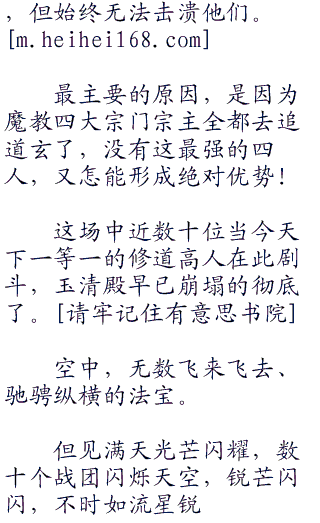 ，但始终无法击溃他们。
[m.heihei168.com]
最主要的原因，是因为
魔教四大宗门宗主全都去追
道玄了，没有这最强的四
人，又怎能形成绝对优势！
这场中近数十位当今天
下一等一的修道高人在此剧
斗，玉清殿早已崩塌的彻底
了。[请牢记住有意思书院]
空中，无数飞来飞去、
驰骋纵横的法宝。
但见满天光芒闪耀，数
十个战团闪烁天空，锐芒闪
闪，不时如流星锐